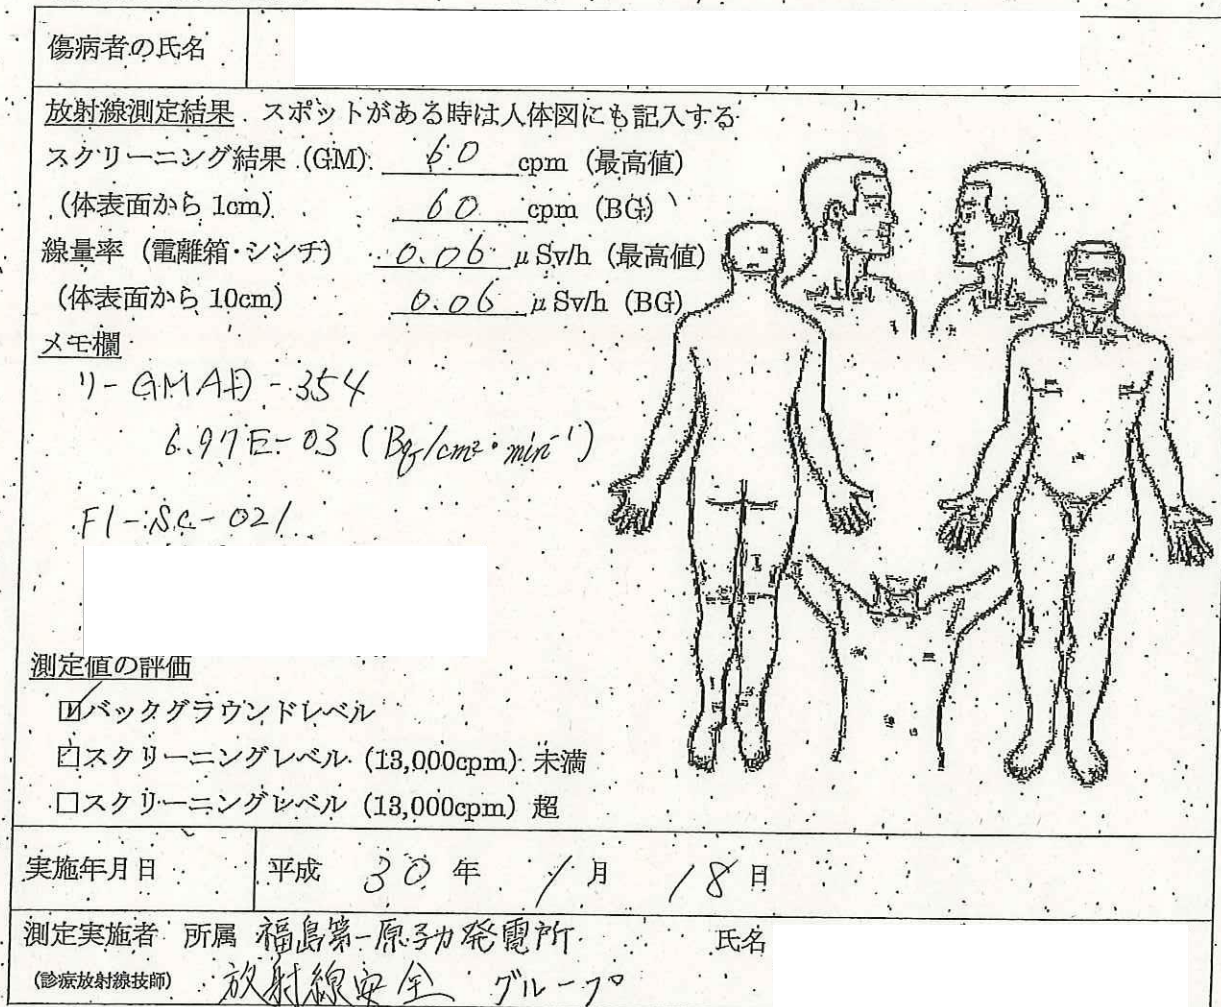 傷病者の氏名
放射線測定結果 スポットがある時は人体図にも記入する
スクリーニング結果 (GM) 60 cpm (最高値)
(体表面から 1cm) 60 cpm (BG)
線量率 (電離箱・シンチ) 0.06 μSv/h (最高値)
(体表面から 10cm) 0.06 μSv/h (BG)
メモ欄
リ-GMAD-354
6.97E-03 (Bq/cm²・min⁻¹)
F1-SC-021
測定値の評価
☑バックグラウンドレベル
□スクリーニングレベル (13,000cpm) 未満
□スクリーニングレベル (13,000cpm) 超
実施年月日 平成 30 年 1 月 18 日
測定実施者 所属 福島第一原子力発電所 氏名
(診療放射線技師) 放射線安全 グループ